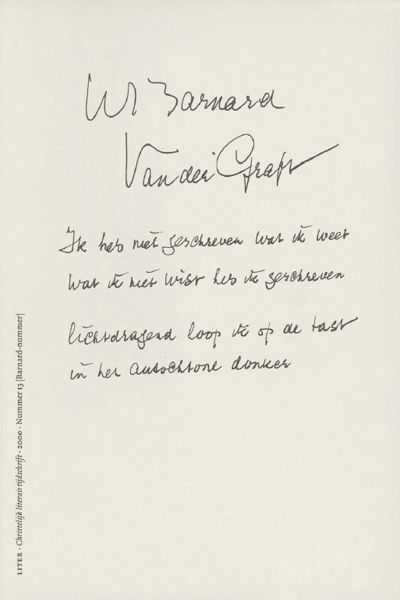 W Barnard
Van der Graft
Ik heb niet geschreven wat ik weet
wat ik niet wist heb ik geschreven
lichtdragend loop ik op de tast
in het autochtone donker
LITER · Christelijk literair tijdschrift · 2000 · Nummer 13 [Barnard-nummer]